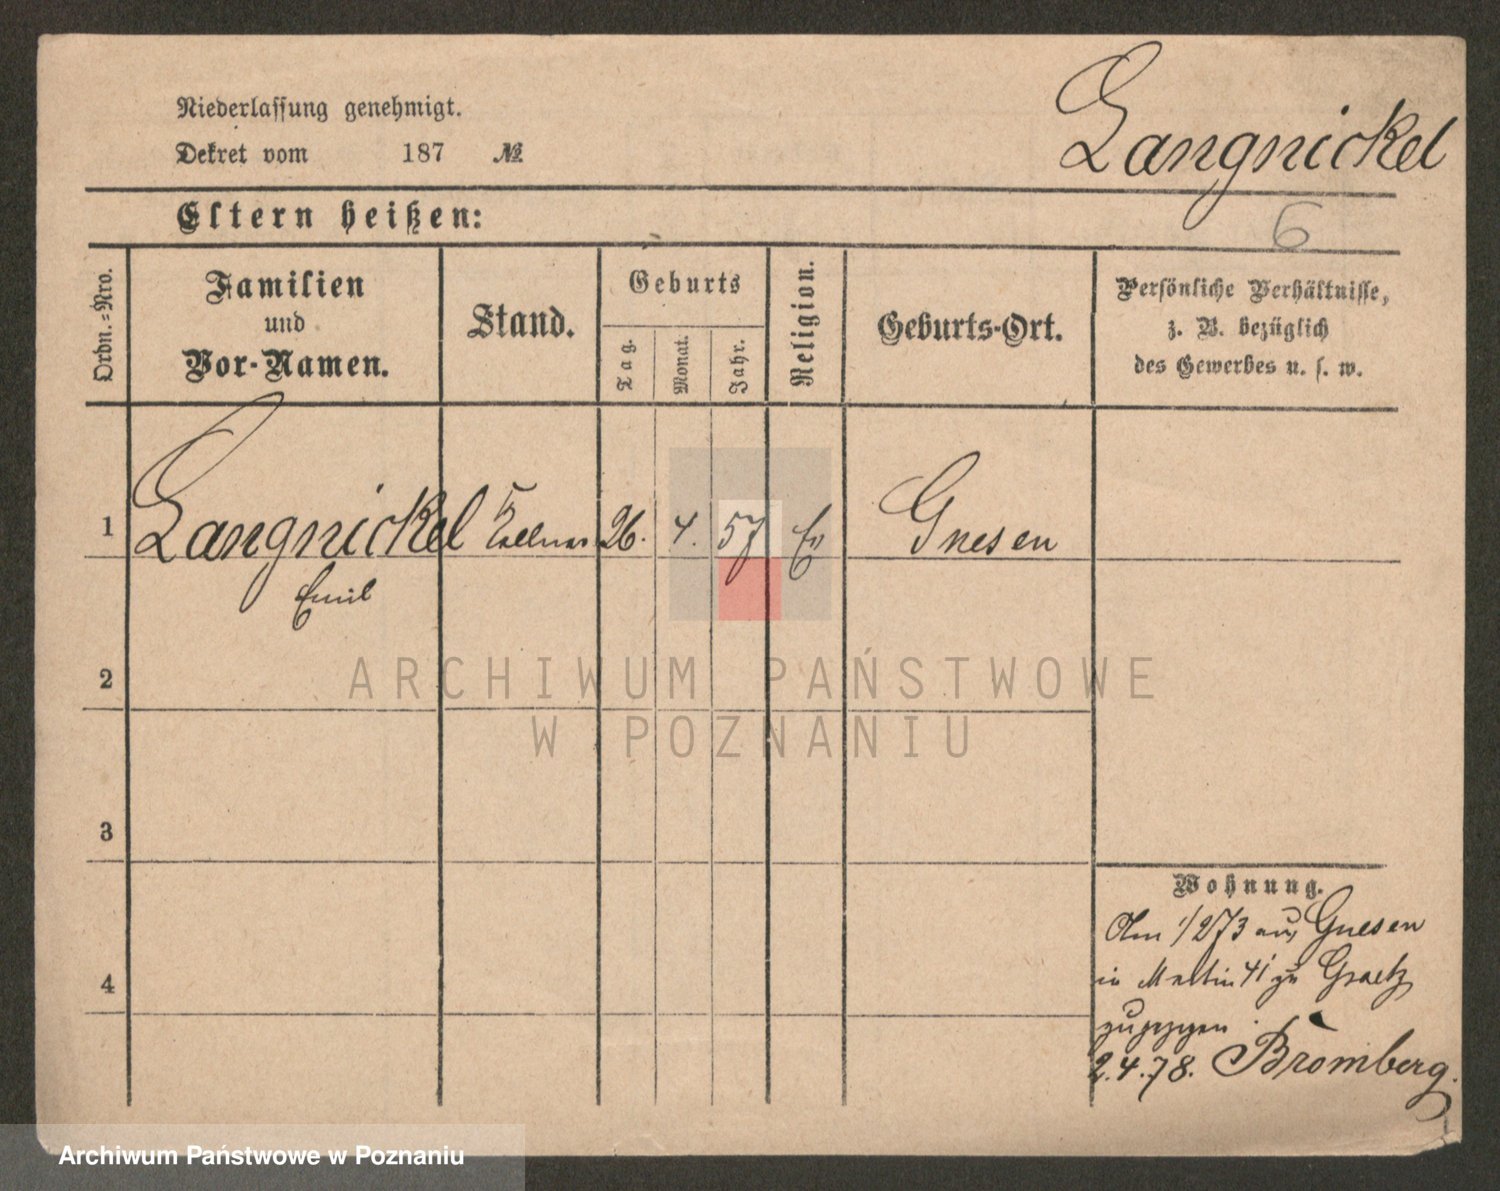 Niederlassung genehmigt.
Langnickel
Dekret vom 187 №
Eltern heißen:
6
Ordn.-Nro.
Familien
und
Vor-Namen.
Stand.
Geburts
Tag.
Monat.
Jahr.
Religion.
Geburts-Ort.
Persönliche Verhältnisse,
z. B. bezüglich
des Gewerbes u. s. w.
1 Langnickel Kellner 26. 4. 57 Ev Gnesen
Emil
2
3
4
Wohnung.
Am 1/2 73 aus Gnesen
in Martin 41 zu Graetz
zugezogen
2.4.78. Bromberg.
ARCHIWUM PAŃSTWOWE
W POZNANIU
Archiwum Państwowe w Poznaniu